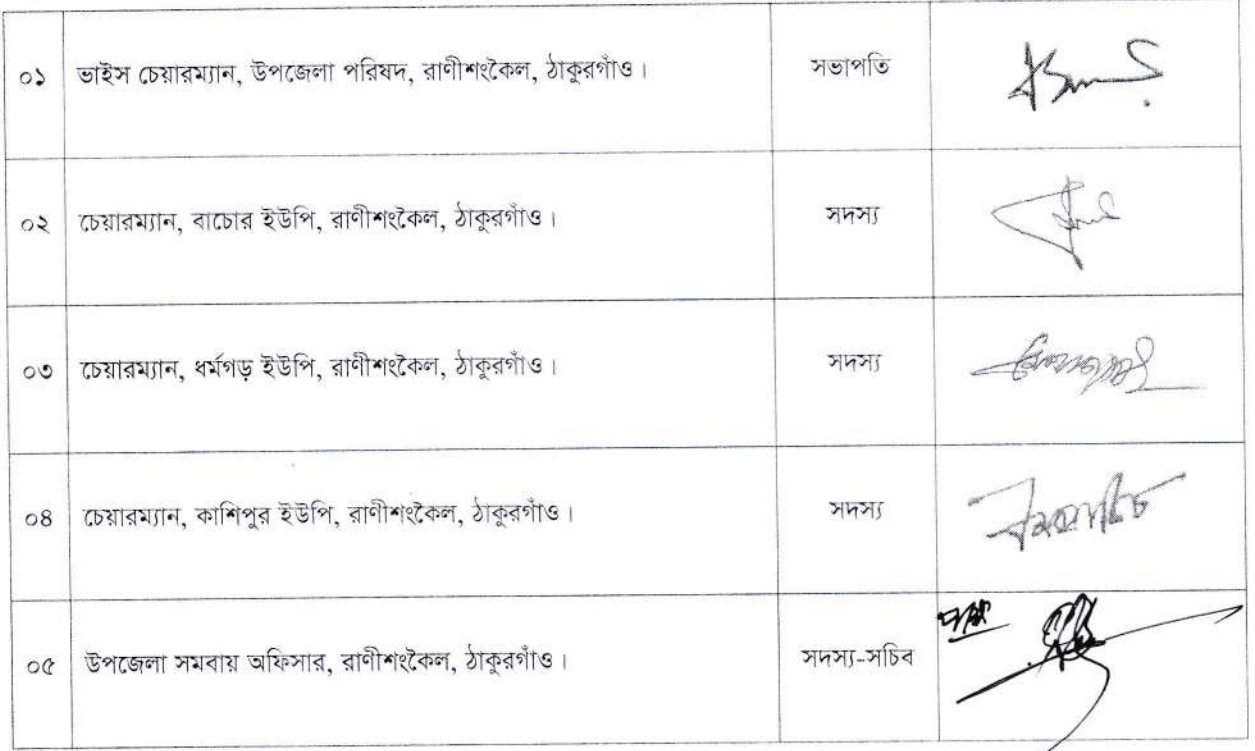 ০১ ভাইস চেয়ারম্যান, উপজেলা পরিষদ, রাণীশংকৈল, ঠাকুরগাঁও। সভাপতি
০২ চেয়ারম্যান, বাচোর ইউপি, রাণীশংকৈল, ঠাকুরগাঁও। সদস্য
০৩ চেয়ারম্যান, ধর্মগড় ইউপি, রাণীশংকৈল, ঠাকুরগাঁও। সদস্য
০৪ চেয়ারম্যান, কাশিপুর ইউপি, রাণীশংকৈল, ঠাকুরগাঁও। সদস্য
০৫ উপজেলা সমবায় অফিসার, রাণীশংকৈল, ঠাকুরগাঁও। সদস্য-সচিব